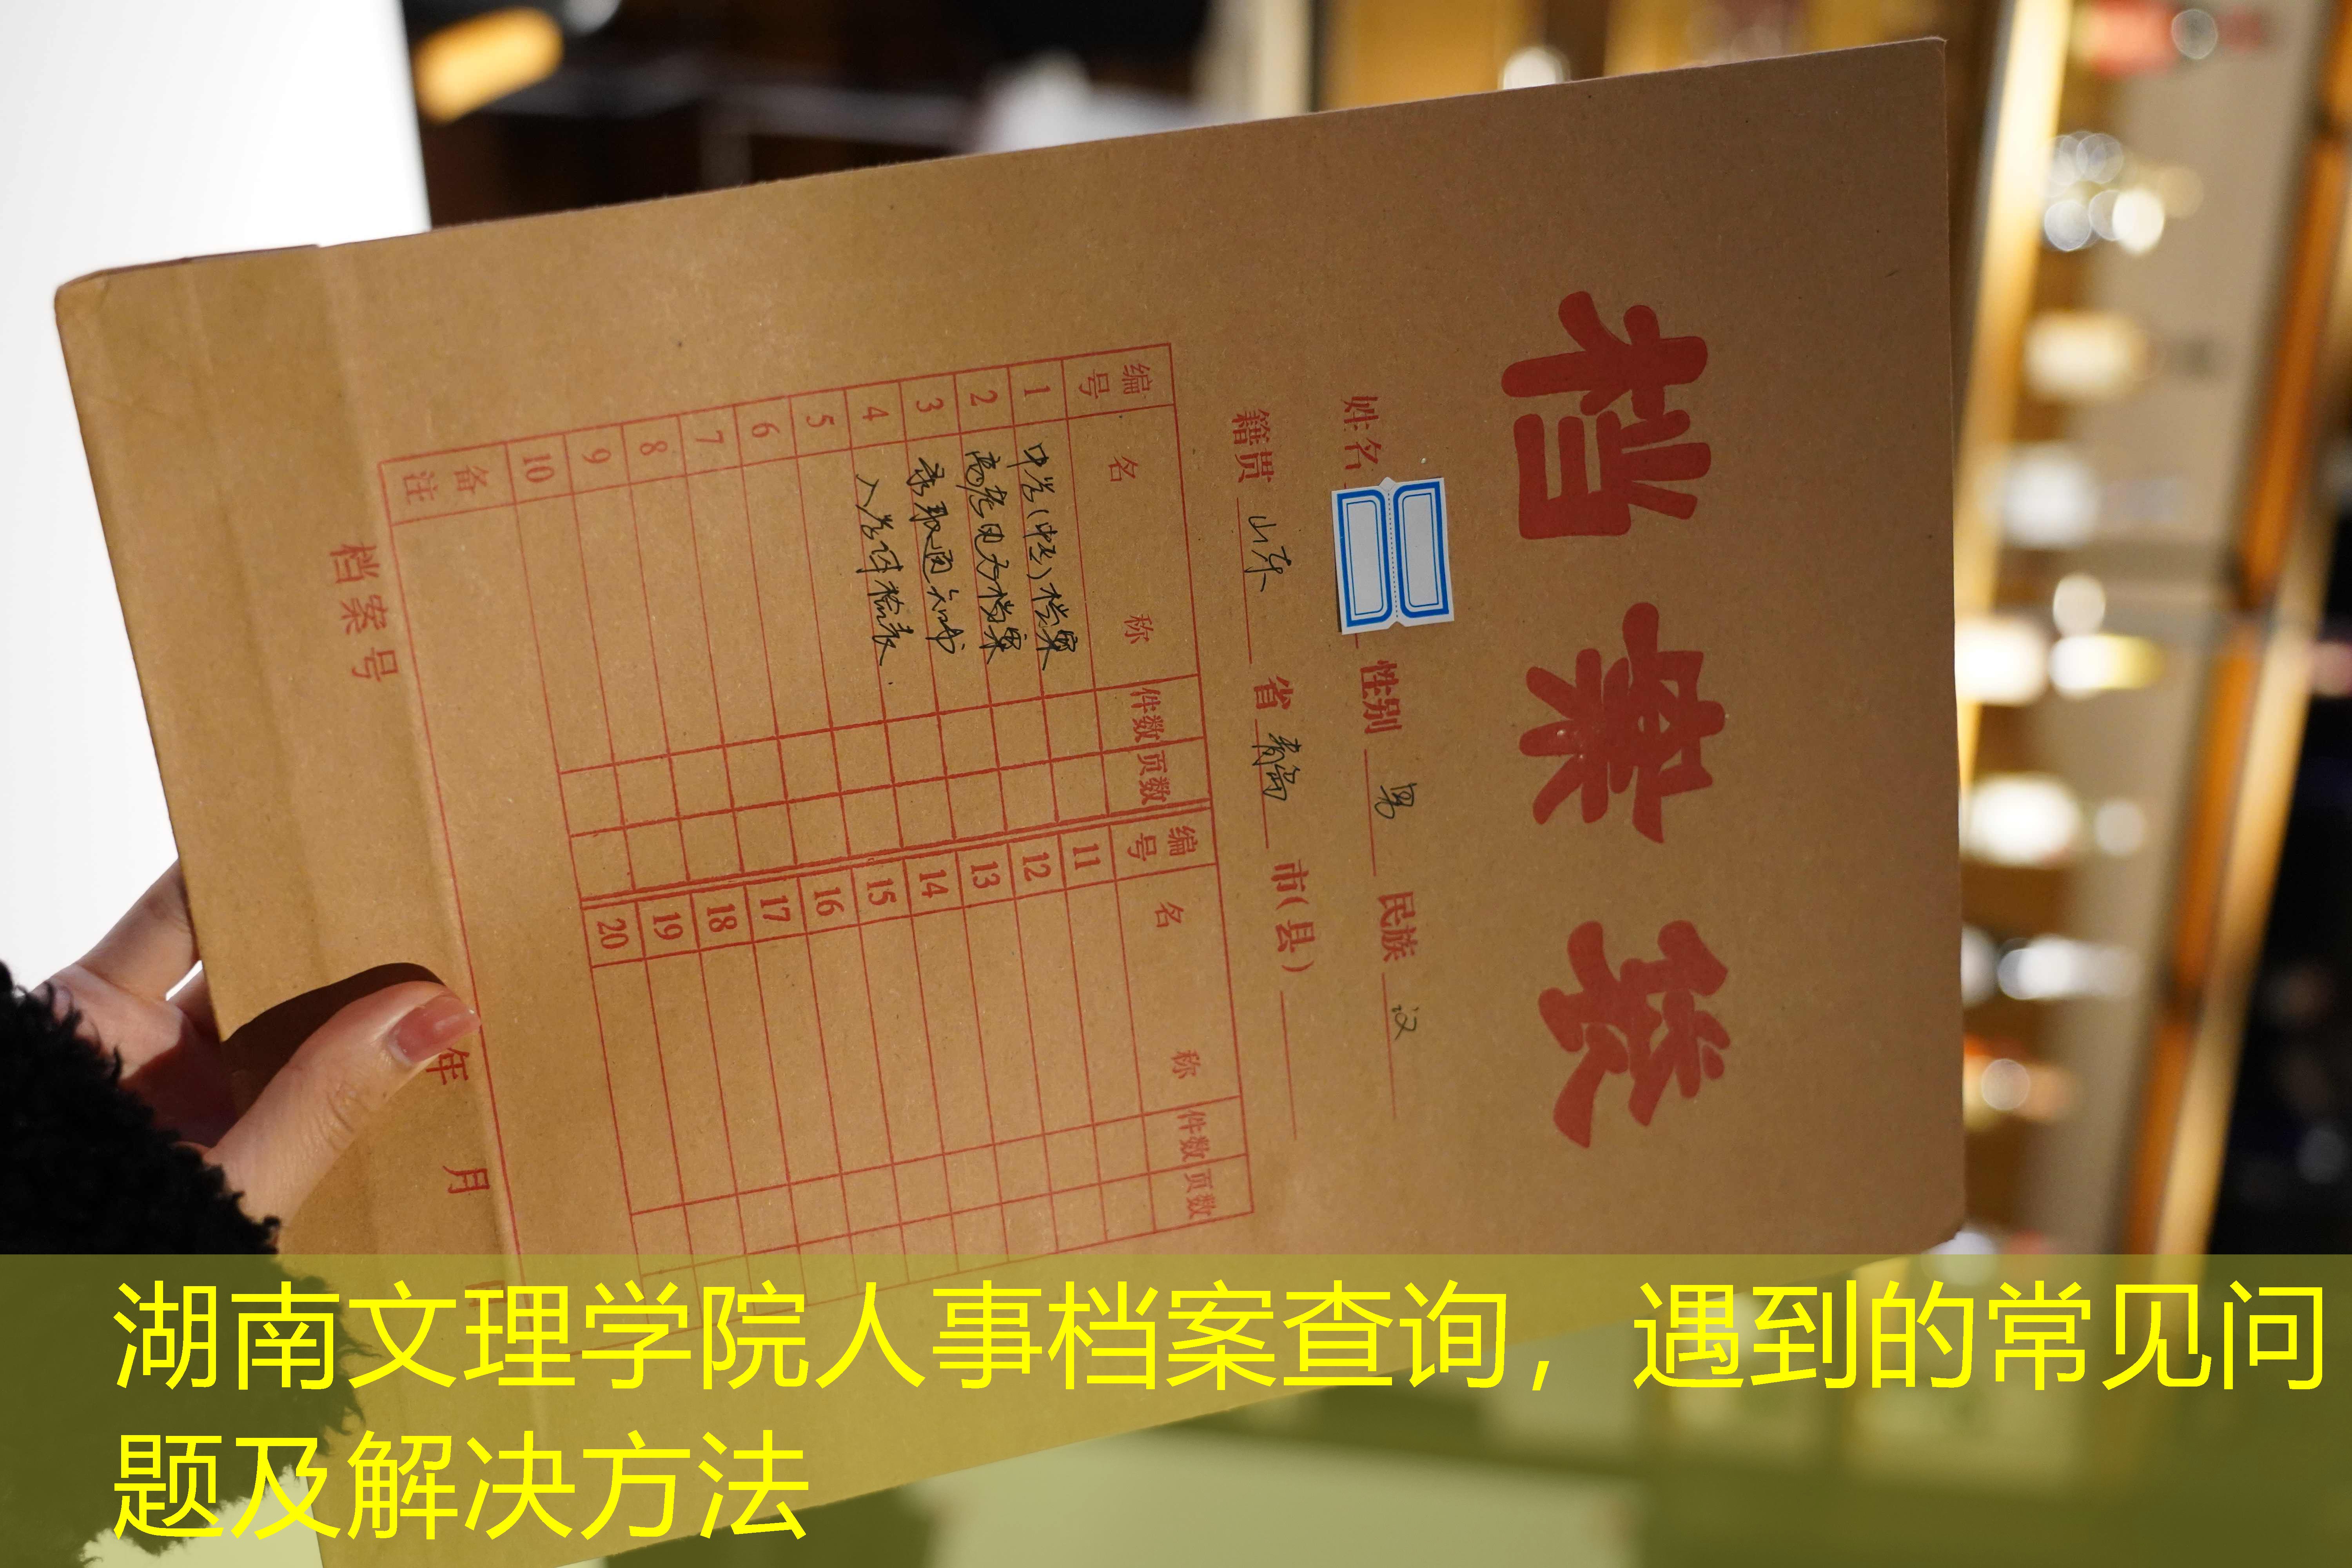 档案袋
姓名 性别 男 民族 汉
籍贯 山东 省 青岛 市(县)
编号 名称 件数 页数 编号 名称 件数 页数
1 中学(中专)档案 11
2 高考电子档案 12
3 录取通知书 13
4 入学体检表 14
5 15
6 16
7 17
8 18
9 19
10 20
备注
档案号 年 月 日
湖南文理学院人事档案查询，遇到的常见问
题及解决方法